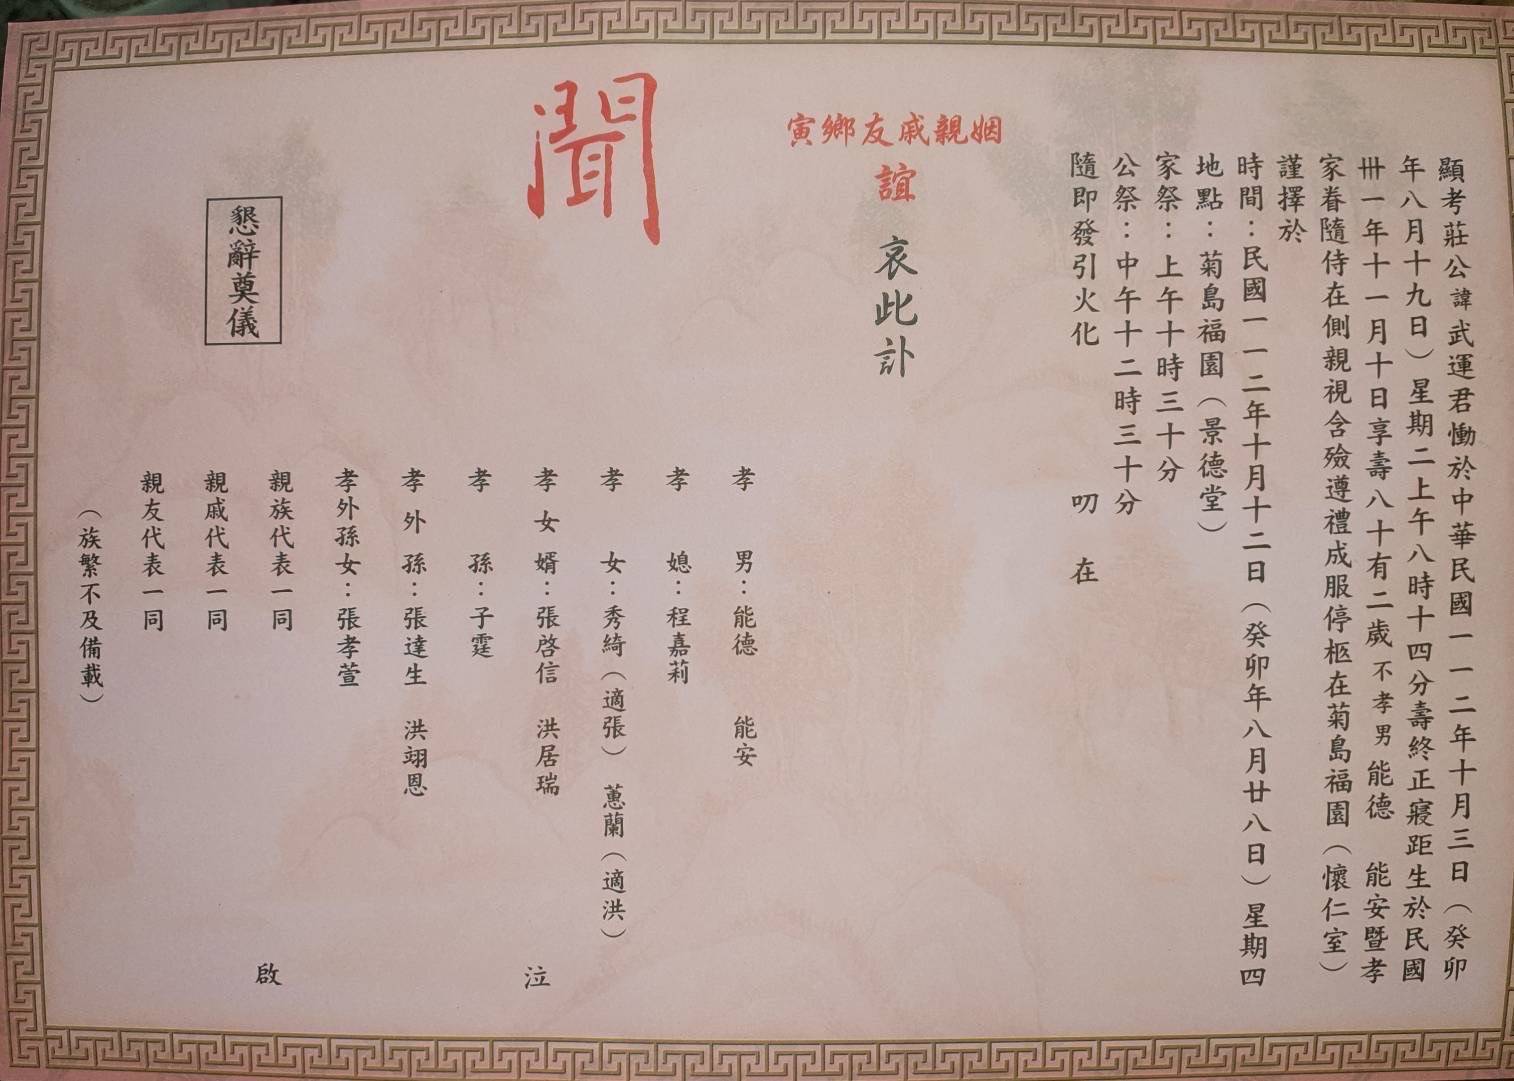 顯考莊公諱武運君慟於中華民國一一二年十月三日（癸卯
年八月十九日）星期二上午八時十四分壽終正寢距生於民國
卅一年十一月十日享壽八十有二歲不孝男能德　能安暨孝
家眷隨侍在側親視含殮遵禮成服停柩在菊島福園（懷仁室）
謹擇於
時間：民國一一二年十月十二日（癸卯年八月廿八日）星期四
地點：菊島福園（景德堂）
家祭：上午十時三十分
公祭：中午十二時三十分
隨即發引火化　叨　在
寅鄉友戚親姻
誼　哀此訃
聞
孝　男：能德　能安
孝　媳：程嘉莉
孝　女：秀綺（適張）　蕙蘭（適洪）
孝女婿：張啓信　洪居瑞
孝　孫：子霆
孝外孫：張達生　洪翊恩
孝外孫女：張孝萱
親族代表一同
親戚代表一同
親友代表一同
（族繁不及備載）
泣
啟
懇辭奠儀